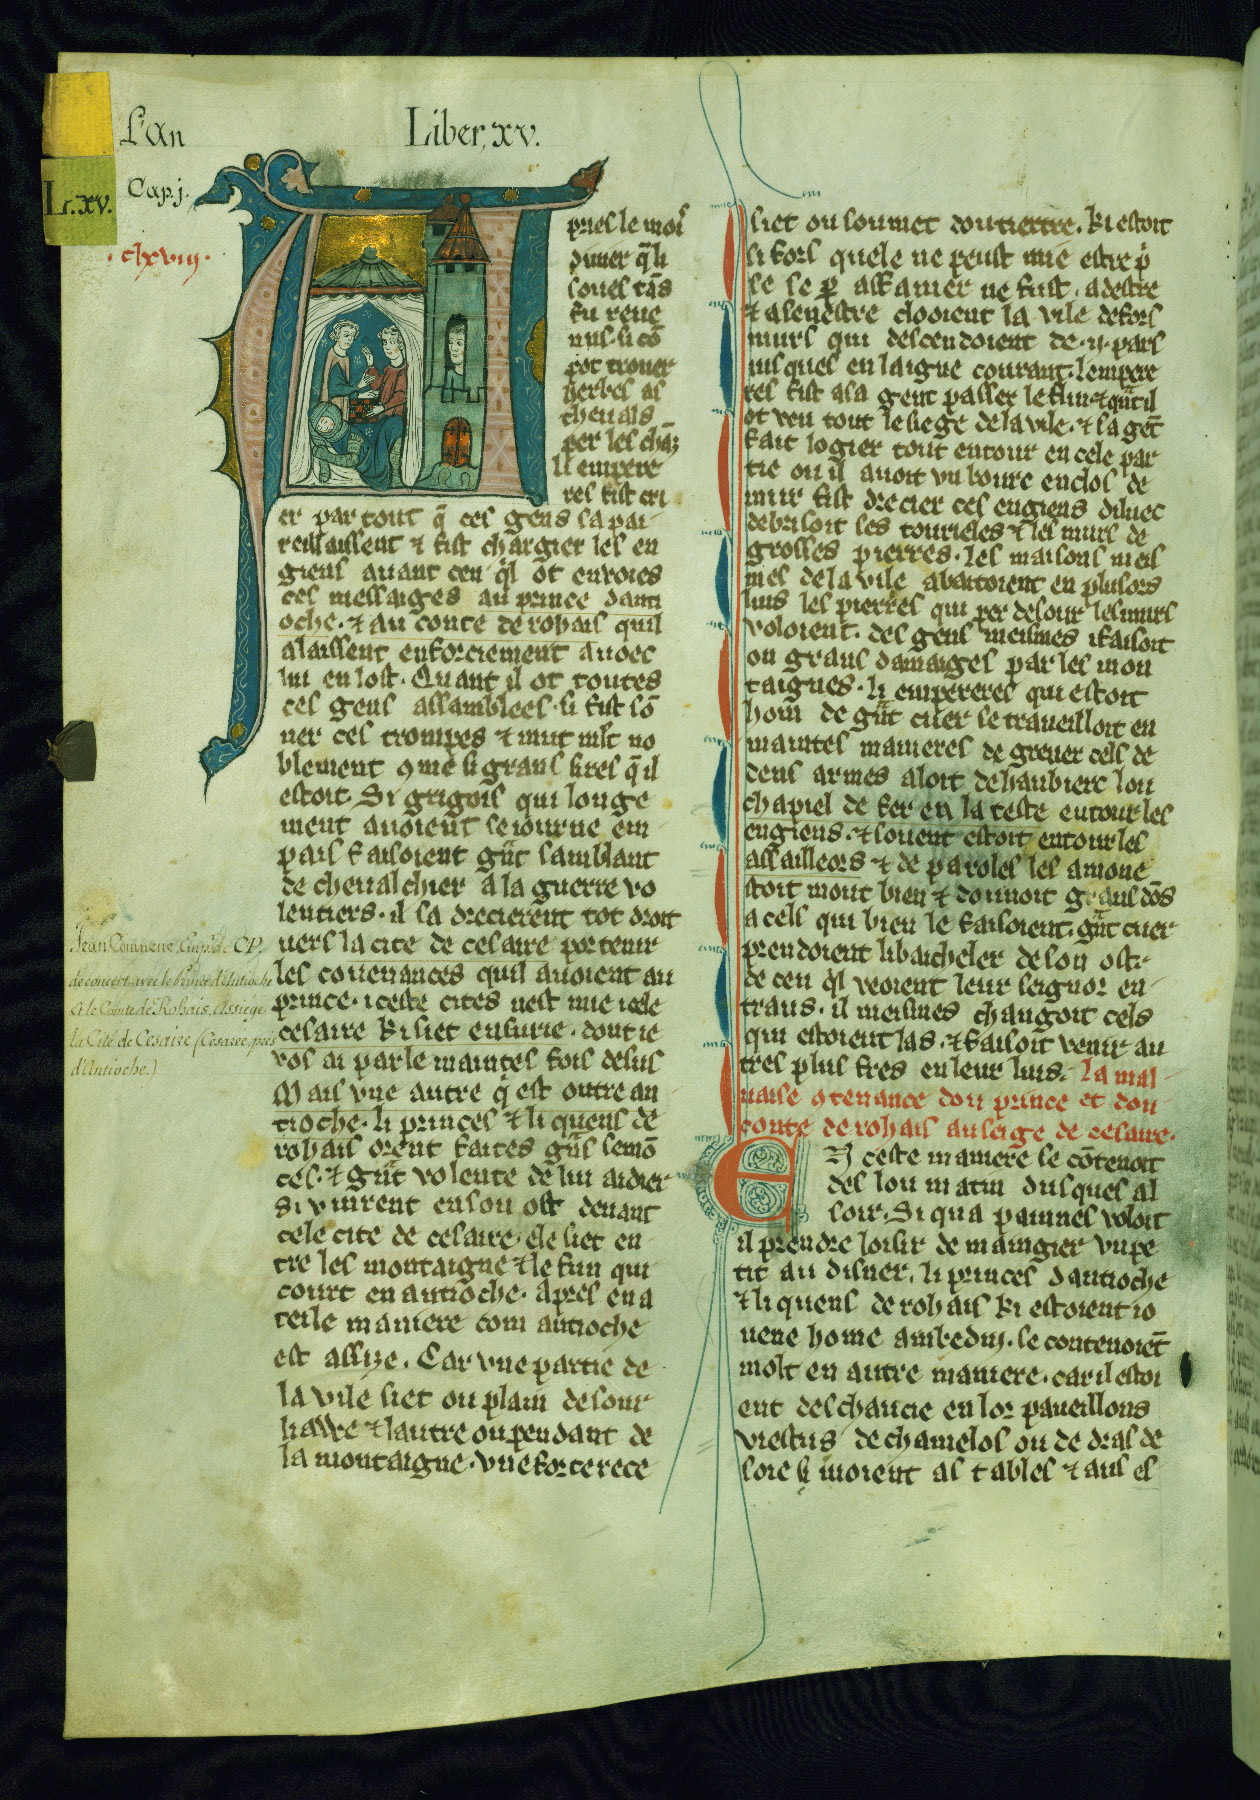 L'an
Liber, xv.
L. xv.
Cap. j.
· clxviij ·
pries le mois
diuer q̃ li
soues tãs
fu reue
nus · si cõ
pot trouer
herbes as
cheuals
per les chãz
li empere
res fist cri
er par tout q̃ ces gens sa pai
reillaissent ⁊ fist chargier les en
giens auant ceu q̃l ot enuoies
ces messaiges au prince danti
oche · ⁊ au conte de rohais quil
alaissent enforciement auoec
lui en lost · Quant il ot toutes
ces gens assamblees · si fist sõ
ner ces trompes ⁊ mut mlt no
blement 9me si grans sires q̃ il
estoit · Si grigois qui longe
ment auoient seiourne em
pais faisoient gñt samblant
de cheualchier a la guerre vo
lentiers · il sa drecierent tot droit
uers la cite de cesaire por tenir
les couenances quil auoient au
prince · iceste cites nest mie icele
cesaire ki siet ensurie · dont ie
vos ai parle maintes fois desus
Mais vne autre q̃ est outre an
tioche · li princes ⁊ li quens de
rohais orent faites grãs semõ
ces · ⁊ gñt volente de lui aidier
Si vinrent en son ost deuant
cele cite de cesaire · ele siet en
tre les montaigne ⁊ le fun qui
court en antioche · apres en a
teile maniere com antioche
est assize · Car vne partie de
la vile siet ou plain desour
liawe ⁊ lautre ou pendant de
la montaigne · vne forterece
Jean Comnene Emp. de CP.
de concert avec le Prince d'Antioche
& le Comte de Rohais, assiege
la Cité de Césaire (Césarée près
d'Antioche.)
siet ou soumet dou tiertre · ki estoit
si fors quele ne peust mie estre p̃
se se p affamer ne fust · a destre
⁊ a senestre clooient la vile defors
murs qui descendoient de · ij · pars
iusques en laigue courant · lempere
res fist a sa gent passer le flun ⁊ qñt il
ot veu tout le siege de la vile · ⁊ sa gẽt
fait logier tout entour en cele par
tie ou il auoit vn bourc enclos de
mur fist drecier ces engiens diluec
debrisoit les tourieles ⁊ les murs de
grosses pierres · les maisons meis
mes de la vile abatoient en plusors
lius les pierres qui per desour les murs
voloient · des gens meismes i faisoit
on grans damaiges par les mon
taignes · li empereres qui estoit
hom de gñt cuer se traueilloit en
maintes manieres de greuer cels de
dens armes aloit de haubierc lou
chapiel de fer en la teste entour les
engiens · ⁊ souent estoit entour les
assailleors ⁊ de paroles les amone
stoit mout bien ⁊ donnoit grans dõs
a cels qui bien le faisoient · gñt cuer
prendoient li baicheler de son ost ·
de ceu q̃l veoient leur seignor en
traus · il meismes changoit cels
qui estoient las · ⁊ faisoit venir au
tres plus fres en leur lius · la mal
uaise 9tenance dou prince et dou
conte de rohais au seige de cesaire ·
En ceste maniere se cõtenoit
des lou matin dusques al
soir · Si qua painnes voloit
il prendre loisir de maingier vn pe
tit au disner · li princes dantioche
⁊ li quens de rohais ki estoient io
uene home ambedui · se contenoiẽt
molt en autre maniere · car il estoi
ent deschaucie en lor paueillons
viestus de chamelos ou de dras de
soie si iuoient as tables ⁊ aus es